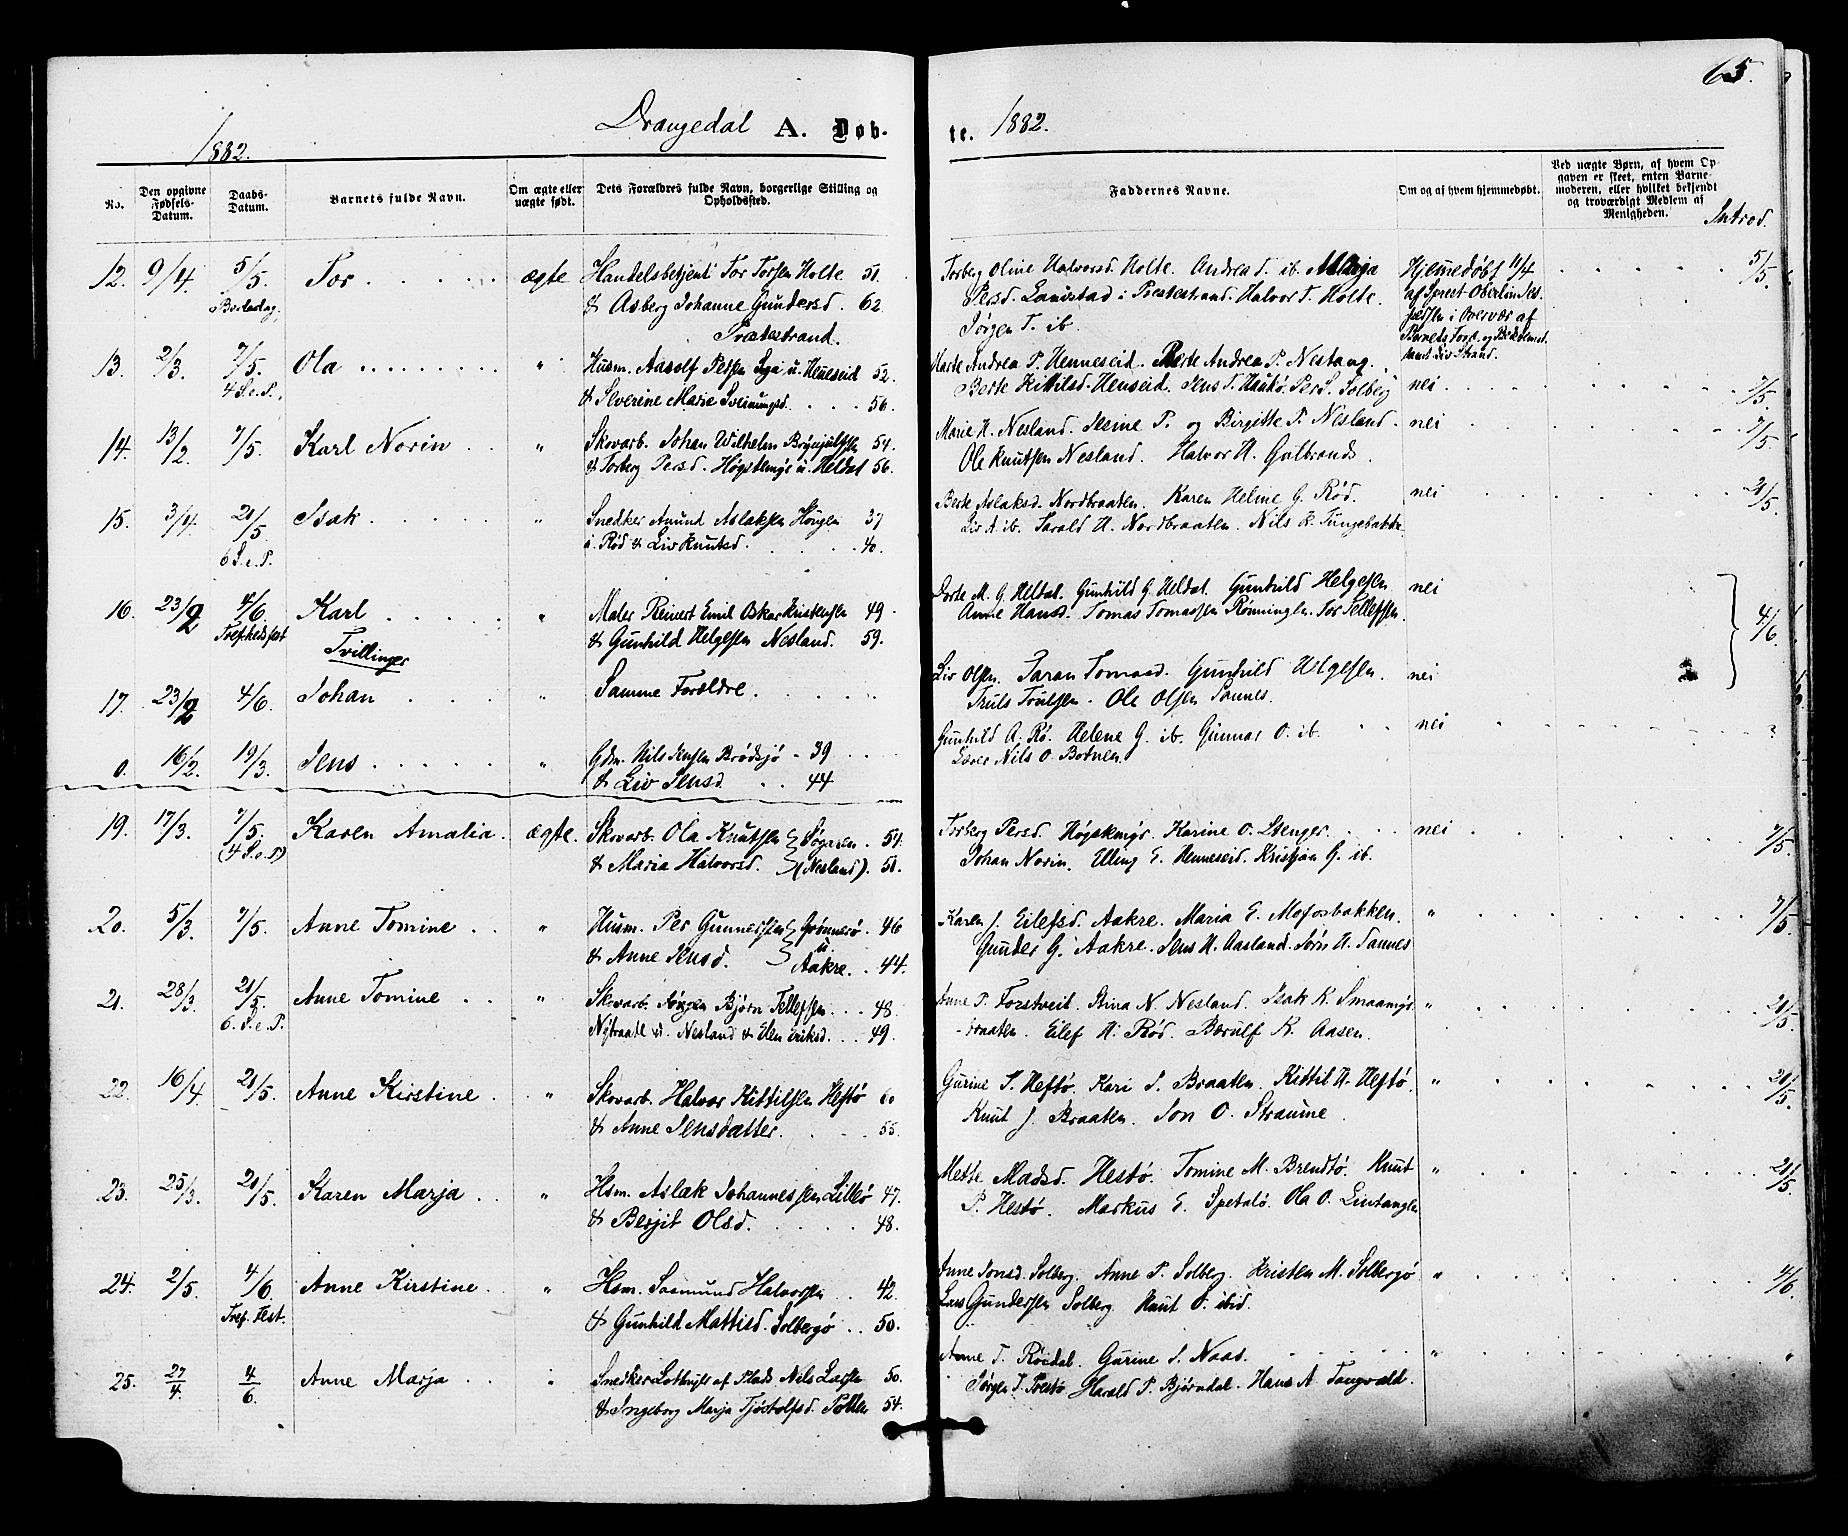 65.
Drangedal A. Døb- te. 1882.
1882.
No.
Den opgivne Fødsels-Datum.
Daabs-Datum.
Barnets fulde Navn.
Om ægte eller uægte født.
Dets Forældres fulde Navn, borgerlige Stilling og Opholdssted.
Faddernes Navne.
Om og af hvem hjemmedøbt.
Ved uægte Børn, af hvem Opgaven er skeet, enten Barnemoderen, eller hvilket bekjendt og troværdigt Medlem af Menigheden.
Introd.
12. 9/4. 5/5. Tor ægte Handelsbetjent Tor Torsen Holte 51.
Bededag. & Asberg Johanne Gundersd. 62.
Prestestrand.
Torberg Oline Halvorsd. Holte. Andrea T. ib. Marja Hjemedøbt 11/4 5/5.
Persd. Landstad i Prestestrand. Halvor T. Holte.
Jørgen T. ib.
13. 2/3. 7/5. Ola " Husm. Aasolf u. Heneseid 52.
4 S. e. P. & Severine Marie Sveinungsd. 56.
Marte Andrea P. Henneseid. Berte Andrea P. Nestang.
Berte Kittilsd. Henseid. Jens T. Haukø. Per S. Solberg nei 7/5.
14. 13/2. 7/5. Karl Norin " Skovarb. Johan Wilhelm Brynjulfsen 54.
& Torberg Persd. Høgskmyr u. Heldal 56.
Marie H. Nesland. Jesine P. og Birgitte P. Nesland. nei 7/5.
Ole Knutsen Nesland. Halvor H. Gulbrands.
15. 3/4. 21/5. Isak " Snedker Amund Aslaksen Haugen 37
6 S. e. P. i Rød & Liv Knutsd. 40.
Berte Aslaksd. Nordbraaten. Karen Heline G. Rød. nei 21/5.
Liv A. ib. Tarald H. Nordbraaten. Nils K. Tungebakke
16. 23/2 4/6. Karl " Maler Reinert Emil Oskar Kristensen 49
Trefhedsfest & Gunhild Helgesen Nesland. 59.
Tvillinger
Dorte M. G. Heldal. Gunhild G. Heldal. Gunhild Helgesen nei
Anne Hansd. Tomas Tomassen Rønningen. Tor Tellefsen. 4/6.
17. 23/2 4/6. Johan " Samme Forældre.
Liv Olsen. Taran Tomasd. Gunhild Helgesen. nei
Truls Trulsen. Ole Olsen Sannes.
0. 16/2. 19/3. Jens " Gdm. Nils Jensen Brødsjø - 39
& Liv Jensd. 44
Gunhild A. Rø. Helene G. ib. Gunnar O. ib. nei
Nils O. Botnen.
19. 17/3. 7/5. Karen Amalia. ægte. Skovarb. Ola Knutsen 54.
(4 S. e. P) & Maria Halvorsd. (Nesland). 51.
Torberg Persd. Høgskmyr. Karine O. Stenger. nei 7/5.
Johan Norin. Elling E. Henneseid. Kristjan G. ib.
20. 5/3. 7/5. Anne Tomine " Husm. Per Gunnersen Grønnerø 46
& Anne Jensd. u. Aakre. 44.
Karen J. Eilefsd. Aakre. Maria E. Moforbakken. " 7/5.
Gunder G. Aakre. Jens H. Aasland. Søren H. Sannes
21. 28/3. 21/5. Anne Tomine " Skovarb. Jørgen Bjørn Tellefsen 48.
6. S. e. P. Nybraate u. Nesland & Elen Eriksd. 49.
Anne P. Forstveit. Stina N. Nesland. Isak K. Smaamyr- " 21/5.
braaten. Eilef H. Rød. Bærulf K. Aasen.
22. 16/4 21/5. Anne Kirstine. " Skovarb. Halvor Kittilsen Heftø 60
& Anne Jensdatter. 55.
Gurine S. Heftø. Kari S. Braaten. Kittil H. Heftø. " 21/5.
Knut J. Braaten. Jon O. Straume.
23. 25/3. 21/5. Karen Marja " Hsm. Aslak Johannessen Lillø 47.
& Berjit Olsd. 48.
Mette Madsd. Hestø. Tomine M. Brendtø. Knut " 21/5.
P. Hestø. Markus E. Spetalø. Ola O. Lintangen
24. 2/5. 4/6. Anne Kirstine. " Hsm. Sosmund Halvorsen 42.
Tref. Fest. & Gunhild Mattisd. Solbergø 50.
Anne Jonsd. Solberg. Anne P. Solberg. Kristen M. Solbergø " 4/6.
Lars Gundersen Solberg. Knut O. ibid.
25. 27/4. 4/6. Anne Marja " Snedker af Plads Nils Larsen 50.
& Ingeborg Marja Tjøstolfsd. Tolten 54.
Anne T. Røisdal. Gurine S. Naas. "
Jørgen T. Prestø. Harald P. Bjørndal. Hans A. Tangvald.